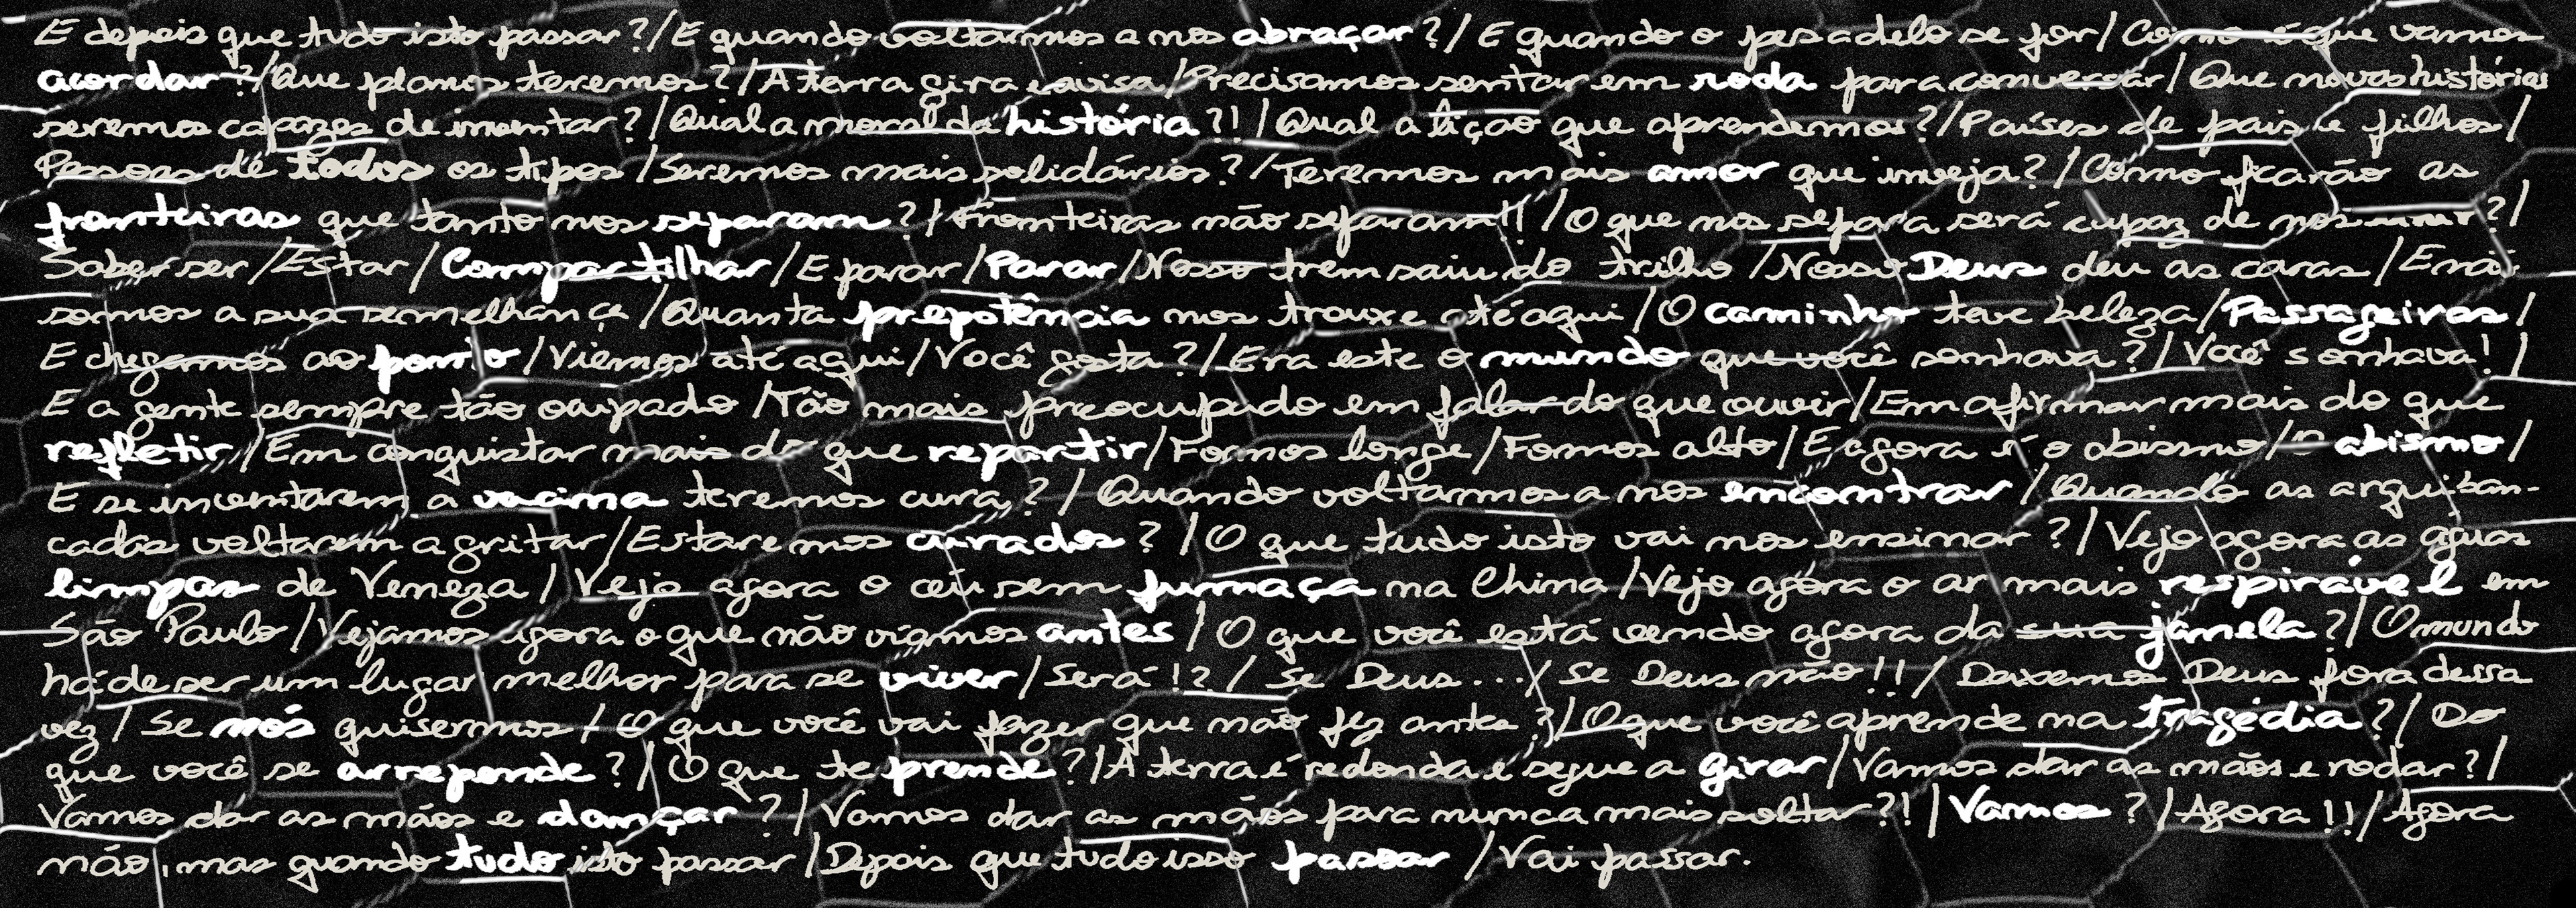 E depois que tudo isto passar?/E quando voltarmos a nos abraçar?/E quando o pesadelo se for/Como é que vamos
acordar?/Que planos teremos?/A terra gira e avisa/Precisamos sentar em roda para conversar/Que novas histórias
seremos capazes de inventar?/Qual a moral da história?!/Qual a lição que aprendemos?/Países de pais e filhos/
Pessoas de todos os tipos/Seremos mais solidários?/Teremos mais amor que inveja?/Como ficarão as
fronteiras que tanto nos separam?/Fronteiras não separam!!/O que nos separa será capaz de nos unir?/
Saber ser/Estar/Compartilhar/E parar/Parar/Nosso trem saiu do trilho/Nosso Deus deu as caras/E nós
somos a sua semelhança/Quanta prepotência nos trouxe até aqui/O caminho teve beleza/Passageiros/
E chegamos ao ponto/Viemos até aqui/Você gosta?/Era este o mundo que você sonhava?/Você sonhava!/
E a gente sempre tão ocupado/Tão mais preocupado em falar do que ouvir/Em afirmar mais do que
refletir/Em conquistar mais do que repartir/Fomos longe/Fomos alto/E agora é o abismo/O abismo/
E se inventarem a vacina teremos cura?/Quando voltarmos a nos encontrar/Quando as arquiban-
cadas voltarem a gritar/Estaremos curados?/O que tudo isto vai nos ensinar?/Vejo agora as águas
limpas de Veneza/Vejo agora o céu sem fumaça na China/Vejo agora o ar mais respirável em
São Paulo/Vejamos agora o que não víamos antes/O que você está vendo agora da sua janela?/O mundo
há de ser um lugar melhor para se viver/Será!?/Se Deus.../Se Deus não!!/Deixemos Deus fora dessa
vez/Se nós quisermos/O que você vai fazer que não fez antes?/O que você aprende na tragédia?/Do
que você se arrepende?/O que te prende?/A terra é redonda e segue a girar/Vamos dar as mãos e rodar?/
Vamos dar as mãos e dançar?/Vamos dar as mãos para nunca mais soltar?!/Vamos?/Agora!!/Agora
não, mas quando tudo isto passar/Depois que tudo isso passar/Vai passar.